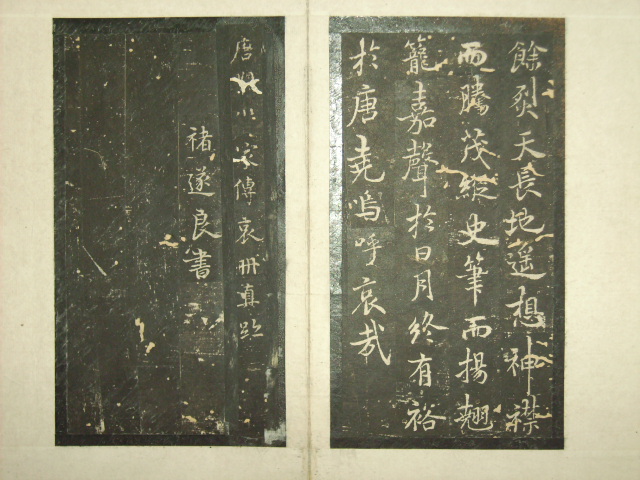 餘烈天長地遥想神襟
而騰茂縱史筆而揚翹
籠嘉聲於日月終有裕
於唐堯嗚呼哀哉
唐 家傳哀冊真跡
褚遂良書